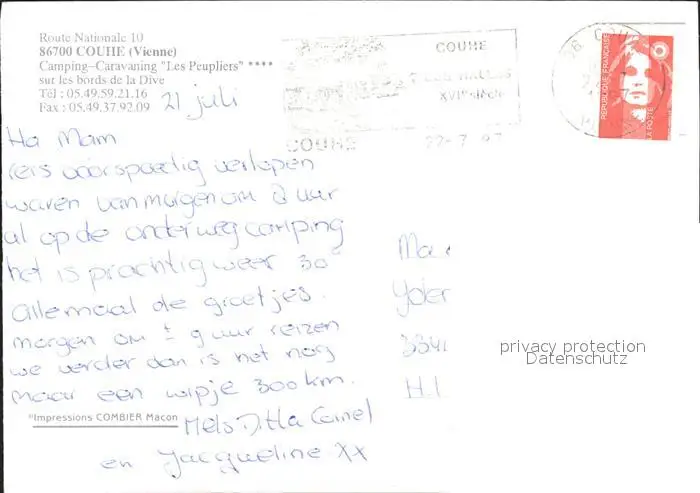 Route Nationale 10
86700 COUHE (Vienne)
Camping-Caravaning "Les Peupliers" ****
sur les bords de la Dive
Tél : 05.49.59.21.16
Fax : 05.49.37.92.09
21 juli
COUHE
XVIIe siècle
COUHE
22-7 97
86 COUHE
REPUBLIQUE FRANÇAISE
LA POSTE
Ha Mam
reis voorspoedig verlopen
waren van morgen om 2 uur
al op de onderweg camping
het is prachtig weer 30°
allemaal de groetjes.
morgen om ± 9 uur reizen
we verder dan is het nog
maar een wipje 300 km.
en Jacqueline xx
Ma
334
H.I
privacy protection
Datenschutz
"Impressions COMBIER Macon